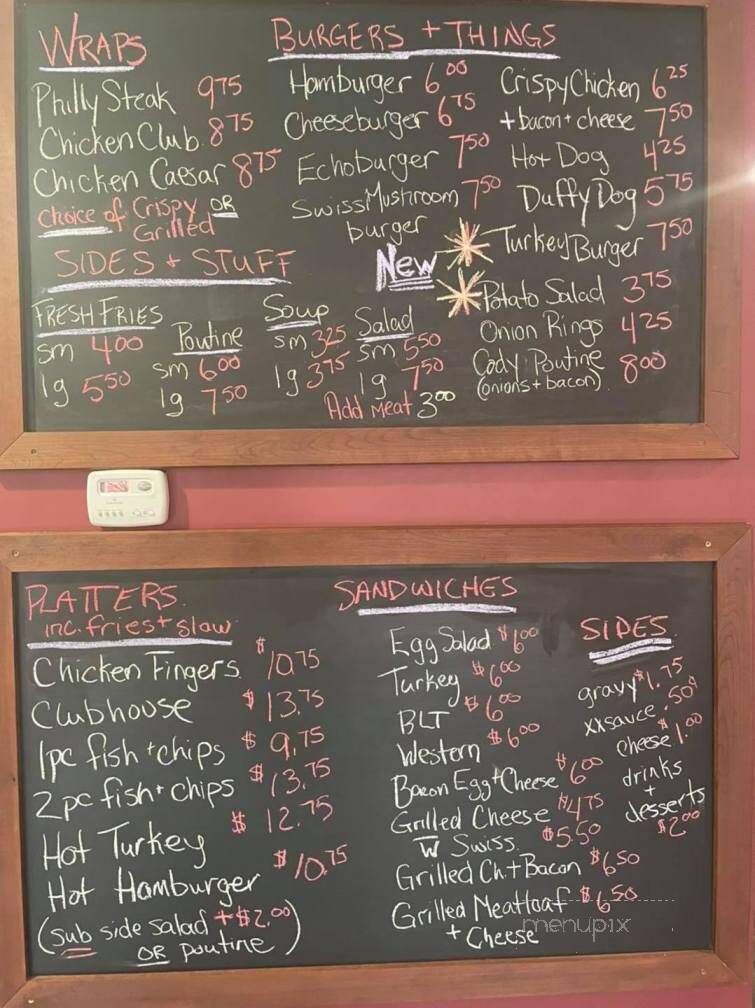 WRAPS
Philly Steak 9 75
Chicken Club 8 75
Chicken Caesar 8 75
Choice of Crispy OR
Grilled
BURGERS + THINGS
Hamburger 6 00
Cheeseburger 6 75
Echoburger 7 50
Swiss Mushroom 7 50
burger
Crispy Chicken 6 25
+ bacon + cheese 7 50
Hot Dog 4 25
Duffy Dog 5 75
Turkey Burger 7 50
New
Potato Salad 3 75
Onion Rings 4 25
Cody Poutine 8 00
(onions + bacon)
SIDES + STUFF
FRESH FRIES
sm 4 00
lg 5 50
Poutine
sm 6 00
lg 7 50
Soup
sm 3 25
lg 3 75
Salad
sm 5 50
lg 7 50
Add Meat 3 00
PLATTERS
inc. fries + slaw
Chicken Fingers $10.75
Clubhouse $13.75
1pc fish + chips $9.75
2pc fish + chips $13.75
Hot Turkey $12.75
Hot Hamburger $10.75
(sub side salad +$2.00
OR poutine)
SANDWICHES
Egg Salad $6 00
Turkey $6 00
BLT $6 00
Western $6 00
Bacon Egg + Cheese $6 00
Grilled Cheese $4 75
w Swiss $5.50
Grilled Ch. + Bacon $6 50
Grilled Meatloaf $6 50
+ Cheese
SIDES
gravy $1.75
xxsauce .50¢
cheese $1.00
drinks
+
desserts
$2 00
menupix